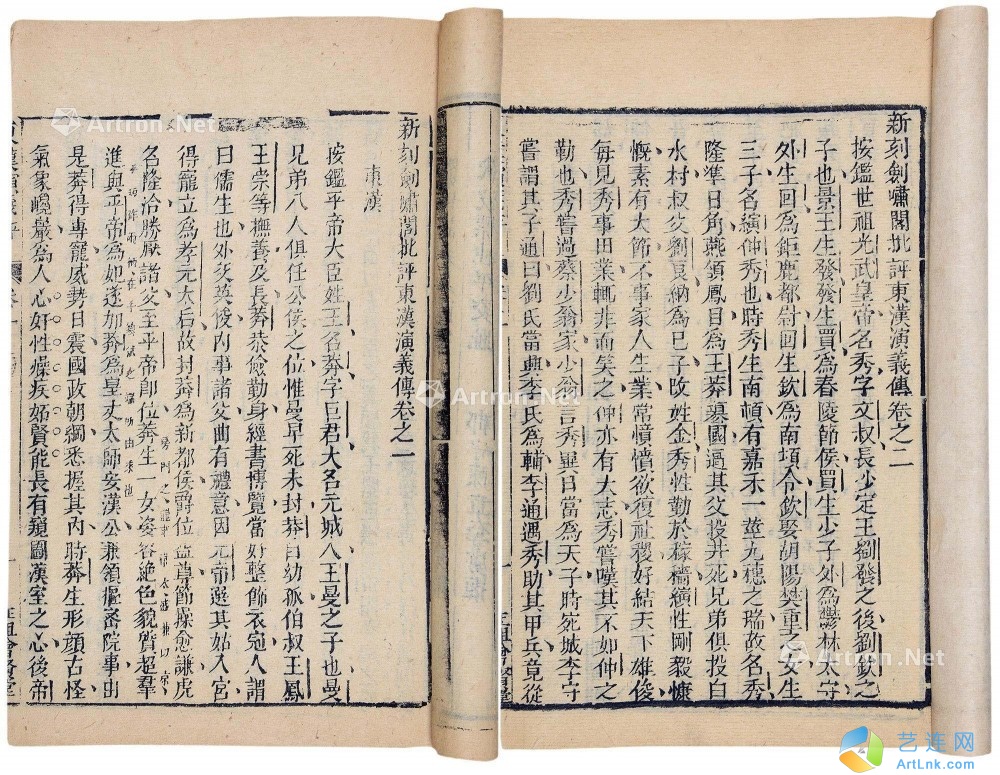 新刻劍嘯閣批評東漢演義傳卷之二
按鑑世祖光武皇帝名秀字文叔長沙定王劉發之後劉欽之
子也景王生發發生買爲舂陵節侯買生少子外爲鬱林太守
外生回爲鉅鹿都尉回生欽爲南頓令欽娶湖陽樊重之女生
三子名縯仲秀也時秀生南頓有嘉禾一莖九穗之瑞故名秀
隆準日角燕頷鳳目爲王莽篡國逼其父投井死兄弟俱投白
水村叔父劉良納爲已子改姓金秀性勤於稼穡縯性剛毅慷
慨素有大節不事家人生業常憤憤欲復社稷好結天下雄俊
每見秀事田業輒非而笑之仲亦有大志秀嘗嘆其不如仲之
勤也秀嘗過蔡少翁家少翁言秀異日當爲天子時宛城李守
嘗謂其子通曰劉氏當興李氏爲輔李通遇秀助其甲兵竟從
新刻劍嘯閣批評東漢演義傳卷之一
東漢
按鑑平帝大臣姓王名莽字巨君大名元城人王曼之子也曼
兄弟八人俱任公侯之位惟曼早死未封莽自幼孤伯叔王鳳
王崇等撫養及長莽恭儉勤身經書博覽當好整飾衣冠人謂
曰儒生也外交英俊內事諸父曲有禮意因元帝選其姑入宮
得寵立爲孝元太后故封莽爲新都侯爵位益尊節操愈謙虎
名隆洽勝厥諸父至平帝卽位莽生一女姿容絕色貌質超羣
進與平帝爲如遂加莽爲皇丈太師安漢公兼領樞密院事由
是莽得專寵威勢日震國政朝綱悉握其內時莽生形顏古怪
氣象巉巖爲人心奸性燥疾妬賢能長有窺圖漢室之心後帝
Artron.Net
Artron.Net
Artron.Net
Artron.Net
艺连网
ArtLnk.com